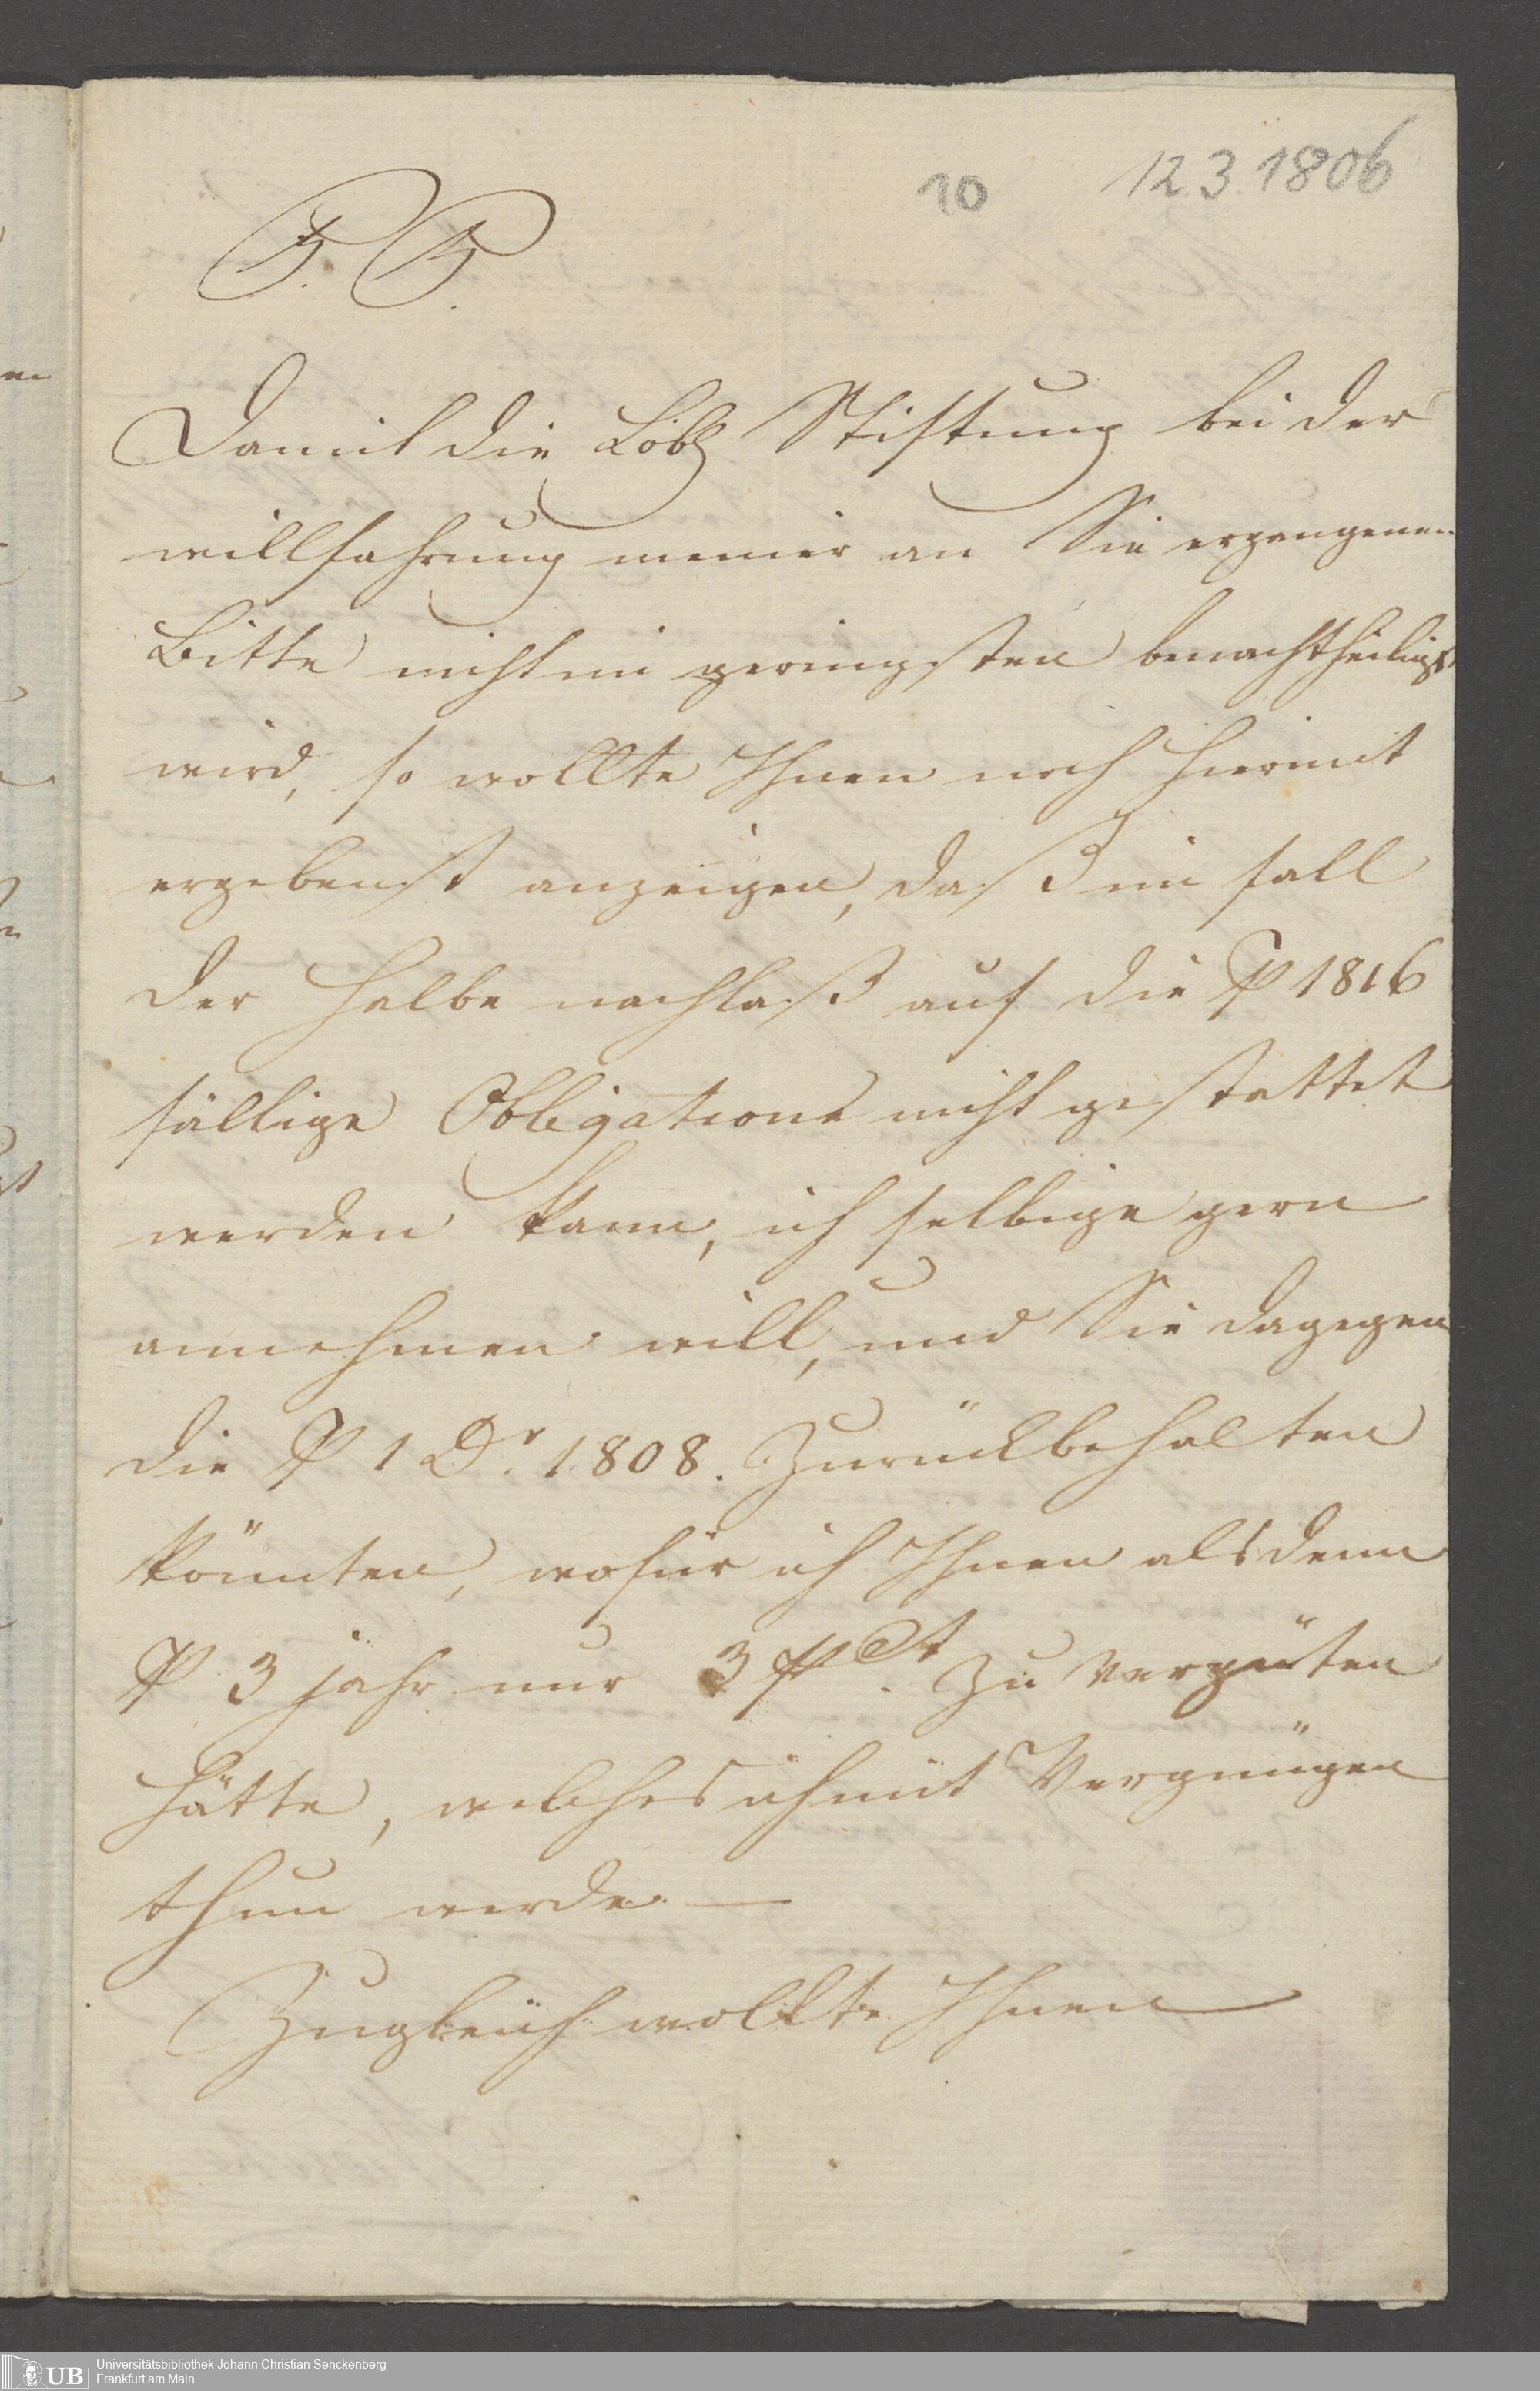 10 12.3.1806
P. P.
Damit die Löbl Stiftung bei der
willfahrung meiner an Sie ergangenen
Bitte nicht im geringsten benachtheiligt
wird, so wollte Ihnen noch hiermit
ergebenst anzeigen, daß im fall
der halbe nachlaß auf die ⅌ 1816
fällige Obligations nicht gestattet
werden kann, ich selbige gern
annehmen will, und Sie dagegen
die ⅌ 1 Dr. 1808. Zurückbehalten
könnten, wofür ich Ihnen alsdenn
⅌ 3 jahr nur 3 pCt. zu vergüten
hätte, welches ich mit Vergnügen
thun werde. —
Zugleich wollte Ihnen
Universitätsbibliothek Johann Christian Senckenberg
Frankfurt am Main
UB